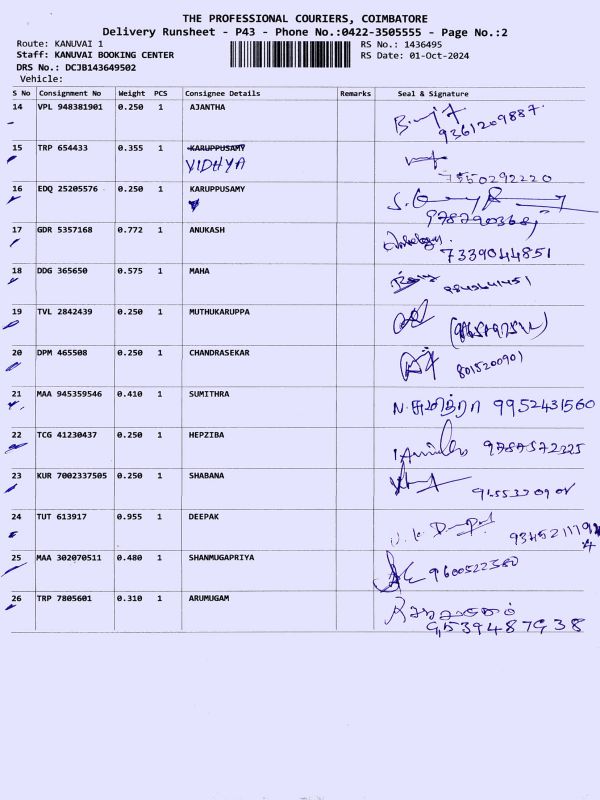 THE PROFESSIONAL COURIERS, COIMBATORE
Delivery Runsheet - P43 - Phone No.:0422-3505555 - Page No.:2
Route: KANUVAI 1
RS No.: 1436495
Staff: KANUVAI BOOKING CENTER
RS Date: 01-Oct-2024
DRS No.: DCJB143649502
Vehicle:
S No Consignment No Weight PCS Consignee Details Remarks Seal & Signature
14 VPL 948381901 0.250 1 AJANTHA
9361209887.
15 TRP 654433 0.355 1 KARUPPUSAMY
VIDHYA
7550292220
16 EDQ 25205576 0.250 1 KARUPPUSAMY
17 GDR 5357168 0.772 1 ANUKASH
7339044851
18 DDG 365650 0.575 1 MAHA
19 TVL 2842439 0.250 1 MUTHUKARUPPA
20 DPM 465508 0.250 1 CHANDRASEKAR
8015200901
21 MAA 945359546 0.410 1 SUMITHRA
N. சுமித்ரா 9952431560
22 TCG 41230437 0.250 1 HEPZIBA
9787572225
23 KUR 7002337505 0.250 1 SHABANA
24 TUT 613917 0.955 1 DEEPAK
25 MAA 302070511 0.480 1 SHANMUGAPRIYA
9600522380
26 TRP 7805601 0.310 1 ARUMUGAM
9539487938